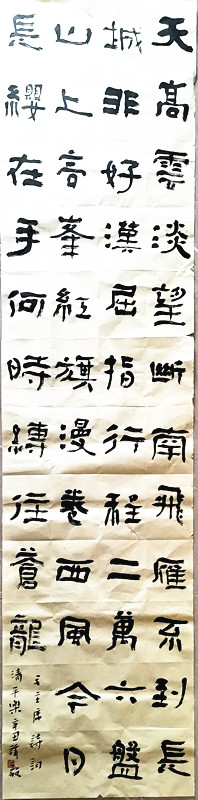 天高雲淡望斷南飛雁不到長
城非好漢屈指行程二萬六盤
山上高峯紅旗漫卷西風今日
長纓在手何時縛住蒼龍
毛主席詩詞
清平樂辛丑